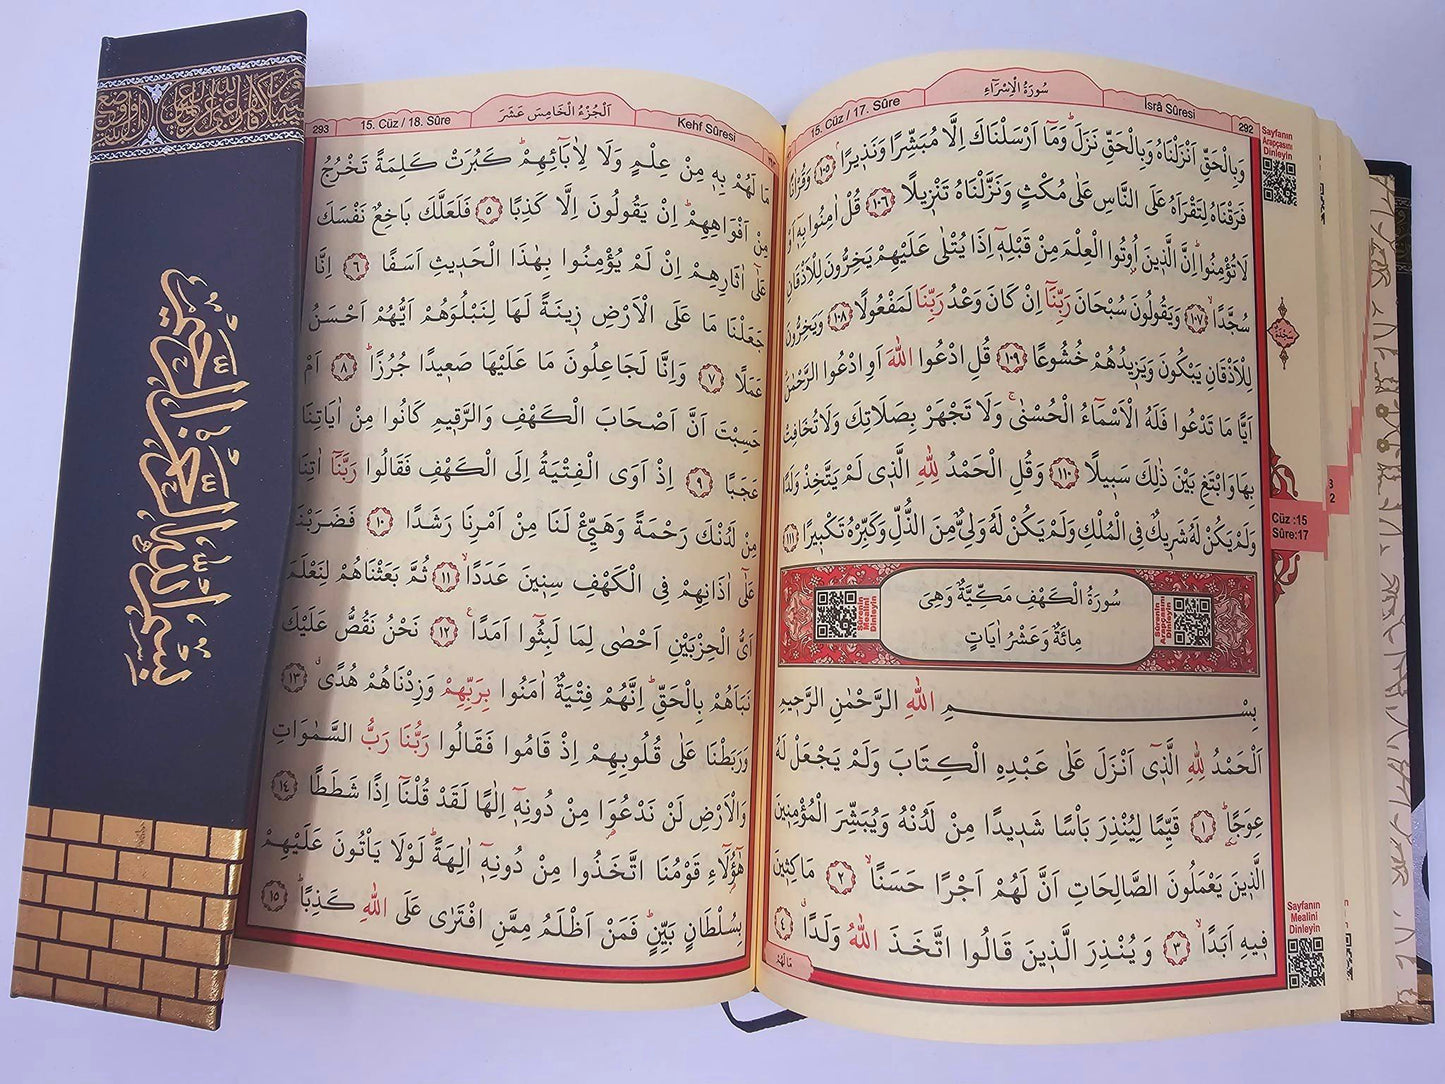 بسم الله الرحمن الرحيم
292
İsrâ Sûresi
سُورَةُ الْاِسْرَٓاءِ
15. Cüz / 17. Sûre
وَبِالْحَقِّ اَنْزَلْنَاهُ وَبِالْحَقِّ نَزَلَۜ وَمَٓا اَرْسَلْنَاكَ اِلَّا مُبَشِّرًا وَنَذ۪يرًاۢ ﴿١٠٥﴾ وَقُرْاٰنًا
فَرَقْنَاهُ لِتَقْرَاَهُ عَلَى النَّاسِ عَلٰى مُكْثٍ وَنَزَّلْنَاهُ تَنْز۪يلًا ﴿١٠٦﴾ قُلْ اٰمِنُوا بِه۪ٓ اَوْ
لَا تُؤْمِنُواۜ اِنَّ الَّذ۪ينَ اُو۫تُوا الْعِلْمَ مِنْ قَبْلِه۪ٓ اِذَا يُتْلٰى عَلَيْهِمْ يَخِرُّونَ لِلْاَذْقَانِ
سُجَّدًاۙ ﴿١٠٧﴾ وَيَقُولُونَ سُبْحَانَ رَبِّنَٓا اِنْ كَانَ وَعْدُ رَبِّنَا لَمَفْعُولًا ﴿١٠٨﴾ وَيَخِرُّونَ
لِلْاَذْقَانِ يَبْكُونَ وَيَز۪يدُهُمْ خُشُوعًا ﴿١٠٩﴾ قُلِ ادْعُوا اللّٰهَ اَوِ ادْعُوا الرَّحْمٰنَۜ
اَيًّا مَا تَدْعُوا فَلَهُ الْاَسْمَٓاءُ الْحُسْنٰىۚ وَلَا تَجْهَرْ بِصَلَاتِكَ وَلَا تُخَافِتْ
بِهَا وَابْتَغِ بَيْنَ ذٰلِكَ سَب۪يلًا ﴿١١٠﴾ وَقُلِ الْحَمْدُ لِلّٰهِ الَّذ۪ي لَمْ يَتَّخِذْ وَلَدًا
وَلَمْ يَكُنْ لَهُ شَر۪يكٌ فِي الْمُلْكِ وَلَمْ يَكُنْ لَهُ وَلِيٌّ مِنَ الذُّلِّ وَكَبِّرْهُ تَكْب۪يرًا ﴿١١١﴾
سُورَةُ الْكَهْفِ مَكِّيَّةٌ وَهِيَ
مِائَةٌ وَعَشْرُ اٰيَاتٍ
Sûrenin
Arapçasını
Dinleyin
Sûrenin
Mealini
Dinleyin
بِسْمِ اللّٰهِ الرَّحْمٰنِ الرَّح۪يمِ
اَلْحَمْدُ لِلّٰهِ الَّذ۪ٓي اَنْزَلَ عَلٰى عَبْدِهِ الْكِتَابَ وَلَمْ يَجْعَلْ لَهُ
عِوَجًاۜ ﴿١﴾ قَيِّمًا لِيُنْذِرَ بَأْسًا شَد۪يدًا مِنْ لَدُنْهُ وَيُبَشِّرَ الْمُؤْمِن۪ينَ
الَّذ۪ينَ يَعْمَلُونَ الصَّالِحَاتِ اَنَّ لَهُمْ اَجْرًا حَسَنًاۙ ﴿٢﴾ مَاكِث۪ينَ
ف۪يهِ اَبَدًاۙ ﴿٣﴾ وَيُنْذِرَ الَّذ۪ينَ قَالُوا اتَّخَذَ اللّٰهُ وَلَدًاۗ ﴿٤﴾
مَا لَهُمْ
Sayfanın
Arapçasını
Dinleyin
سَجْدَةٌ
Cüz :15
Sûre:17
Sayfanın
Mealini
Dinleyin
Kehf Sûresi
اَلْجُزْءُ الْخَامِسَ عَشَرَ
15. Cüz / 18. Sûre
293
مَا لَهُمْ بِه۪ مِنْ عِلْمٍ وَلَا لِاٰبَٓائِهِمْۜ كَبُرَتْ كَلِمَةً تَخْرُجُ
مِنْ اَفْوَاهِهِمْۜ اِنْ يَقُولُونَ اِلَّا كَذِبًا ﴿٥﴾ فَلَعَلَّكَ بَاخِعٌ نَفْسَكَ
عَلٰٓى اٰثَارِهِمْ اِنْ لَمْ يُؤْمِنُوا بِهٰذَا الْحَد۪يثِ اَسَفًا ﴿٦﴾ اِنَّا
جَعَلْنَا مَا عَلَى الْاَرْضِ ز۪ينَةً لَهَا لِنَبْلُوَهُمْ اَيُّهُمْ اَحْسَنُ
عَمَلًا ﴿٧﴾ وَاِنَّا لَجَاعِلُونَ مَا عَلَيْهَا صَع۪يدًا جُرُزًاۜ ﴿٨﴾ اَمْ
حَسِبْتَ اَنَّ اَصْحَابَ الْكَهْفِ وَالرَّق۪يمِ كَانُوا مِنْ اٰيَاتِنَا
عَجَبًا ﴿٩﴾ اِذْ اَوَى الْفِتْيَةُ اِلَى الْكَهْفِ فَقَالُوا رَبَّنَٓا اٰتِنَا
مِنْ لَدُنْكَ رَحْمَةً وَهَيِّئْ لَنَا مِنْ اَمْرِنَا رَشَدًا ﴿١٠﴾ فَضَرَبْنَا
عَلٰٓى اٰذَانِهِمْ فِي الْكَهْفِ سِن۪ينَ عَدَدًاۙ ﴿١١﴾ ثُمَّ بَعَثْنَاهُمْ لِنَعْلَمَ
اَيُّ الْحِزْبَيْنِ اَحْصٰى لِمَا لَبِثُٓوا اَمَدًا۟ ﴿١٢﴾ نَحْنُ نَقُصُّ عَلَيْكَ
نَبَاَهُمْ بِالْحَقِّۜ اِنَّهُمْ فِتْيَةٌ اٰمَنُوا بِرَبِّهِمْ وَزِدْنَاهُمْ هُدًىۗ ﴿١٣﴾
وَرَبَطْنَا عَلٰى قُلُوبِهِمْ اِذْ قَامُوا فَقَالُوا رَبُّنَا رَبُّ السَّمٰوَاتِ
وَالْاَرْضِ لَنْ نَدْعُوَ۬ا مِنْ دُونِه۪ٓ اِلٰهًا لَقَدْ قُلْنَٓا اِذًا شَطَطًا ﴿١٤﴾
هٰٓؤُ۬لَٓاءِ قَوْمُنَا اتَّخَذُوا مِنْ دُونِه۪ٓ اٰلِهَةًۜ لَوْلَا يَأْتُونَ عَلَيْهِمْ
بِسُلْطَانٍ بَيِّنٍۜ فَمَنْ اَظْلَمُ مِمَّنِ افْتَرٰى عَلَى اللّٰهِ كَذِبًاۜ ﴿١٥﴾